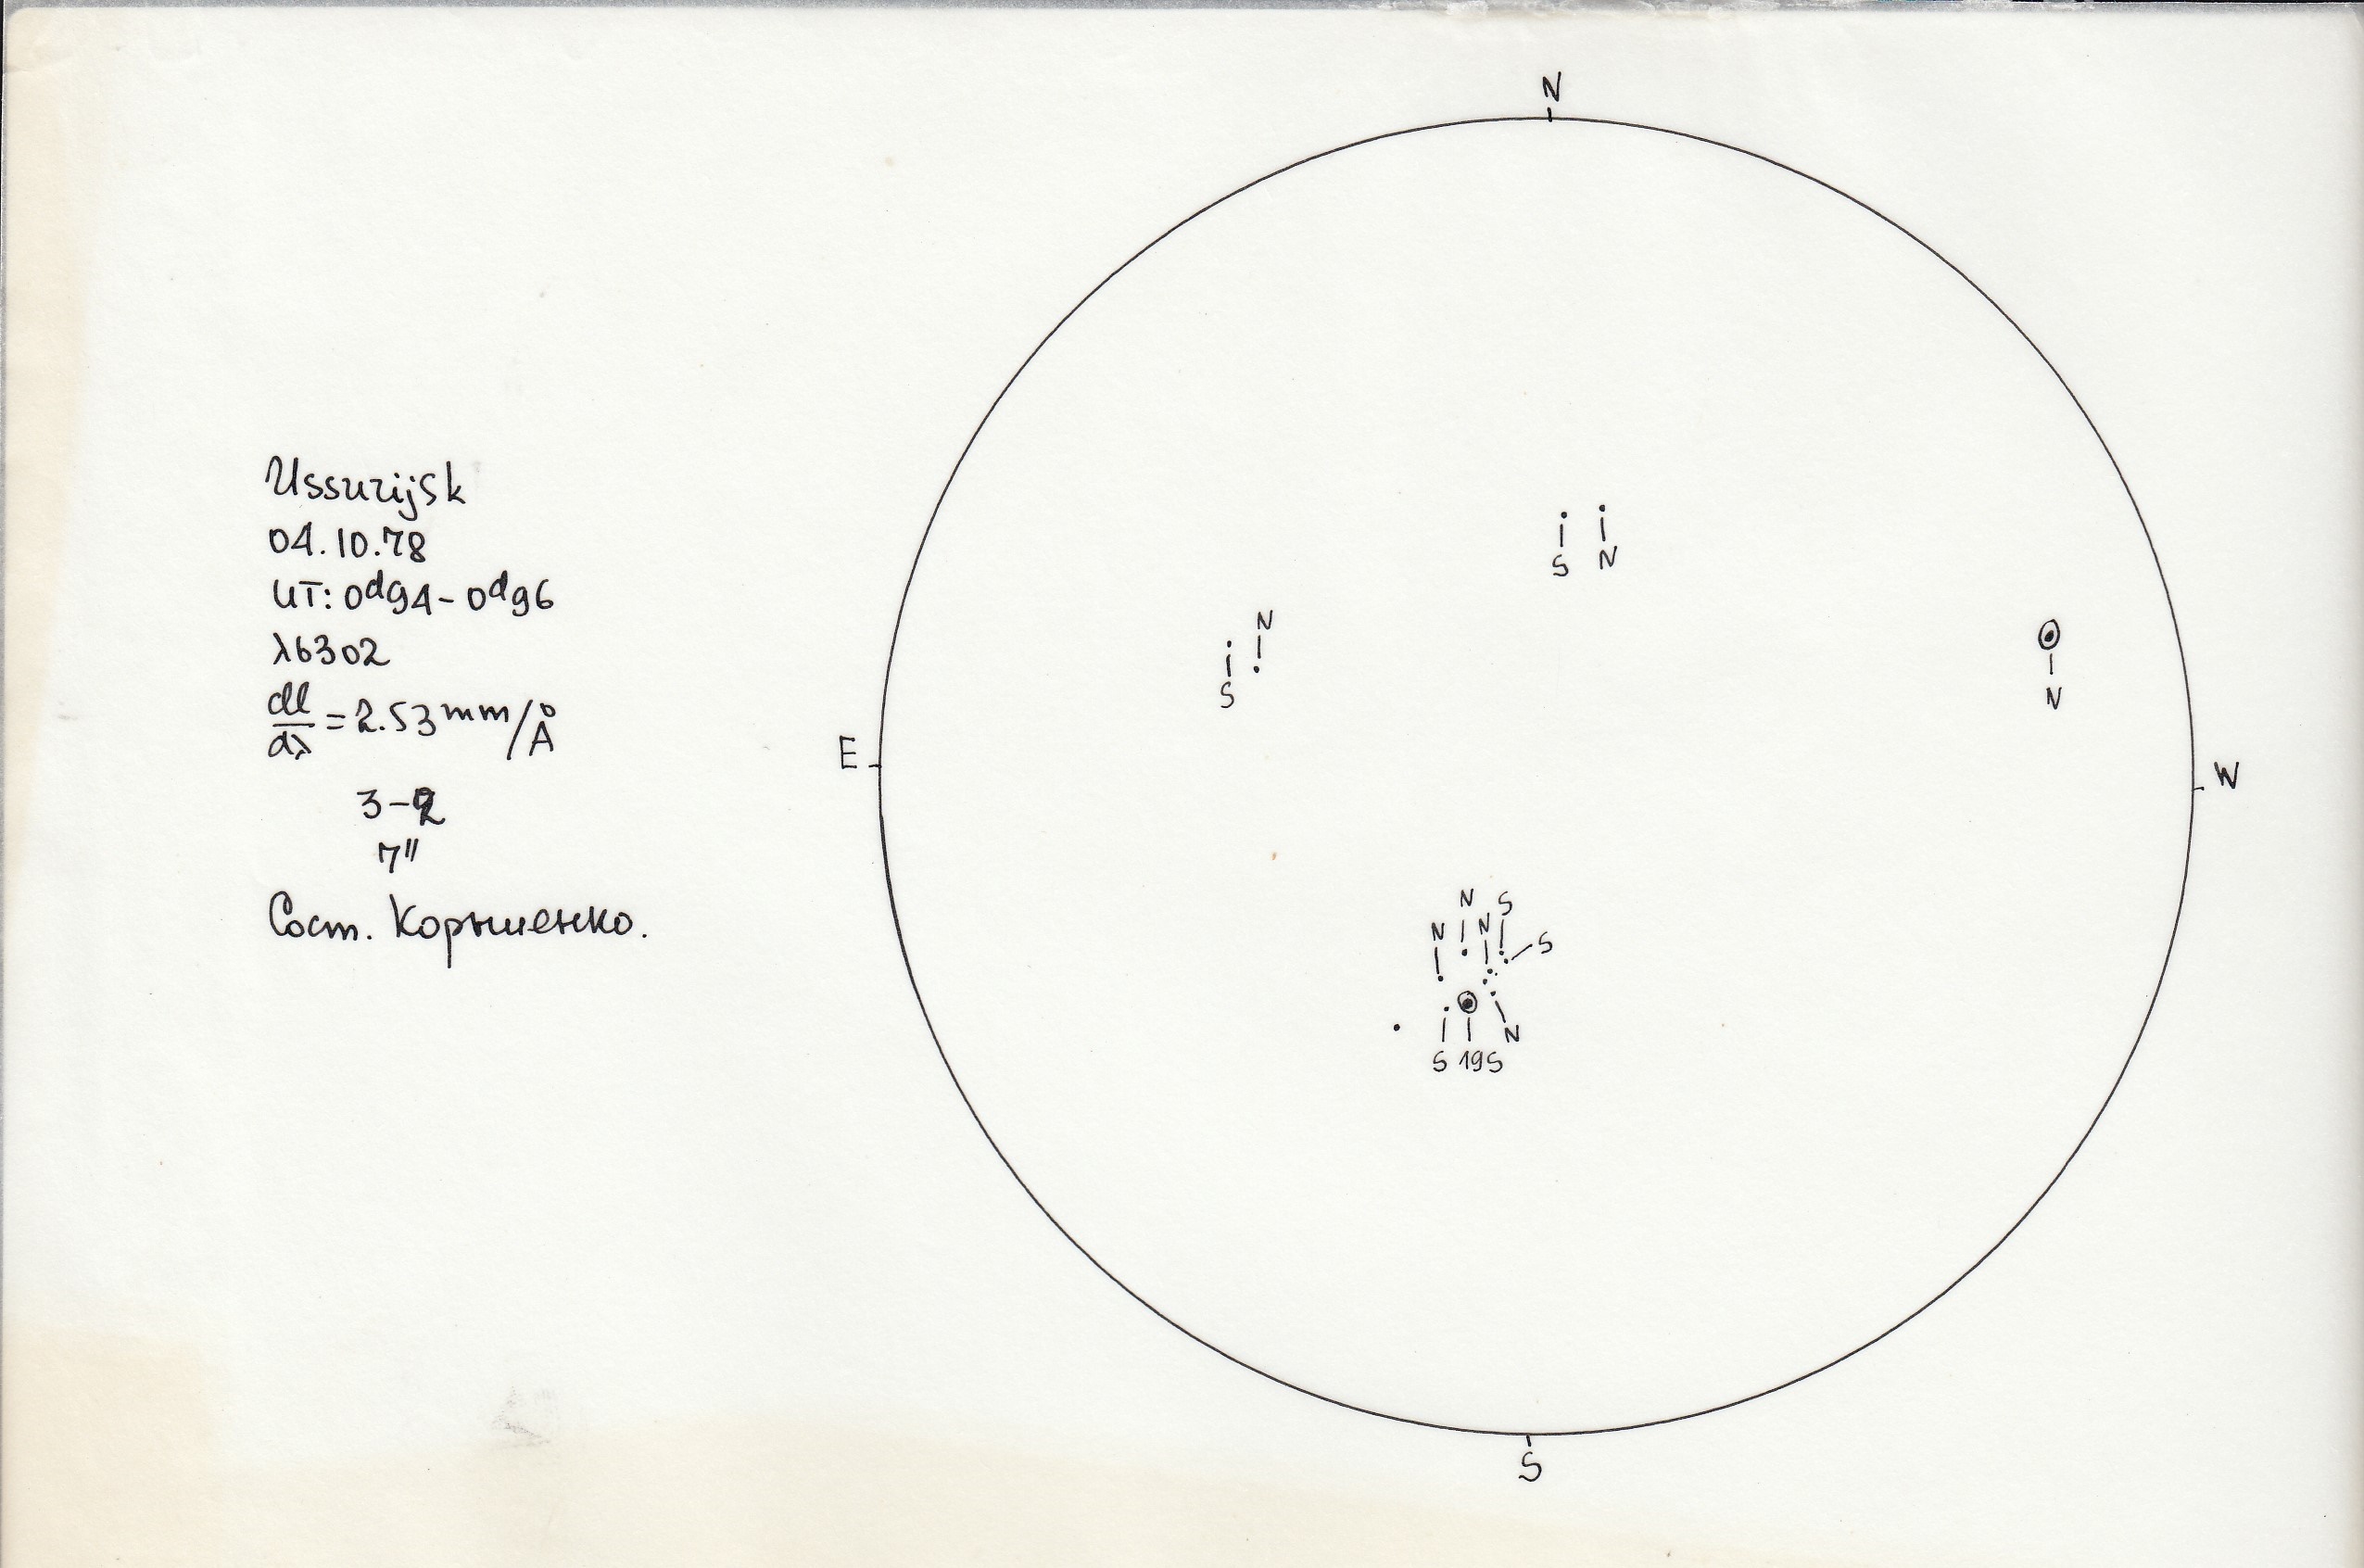 N
Ussurijsk
04.10.78
UT: 0ᵈ94 - 0ᵈ96
λ6302
dl/dλ = 2.53 mm/Å
3-2
7"
Сост. Корниенко.
S N
N
S
N
E
W
N S
N N
S
S 19S N
S